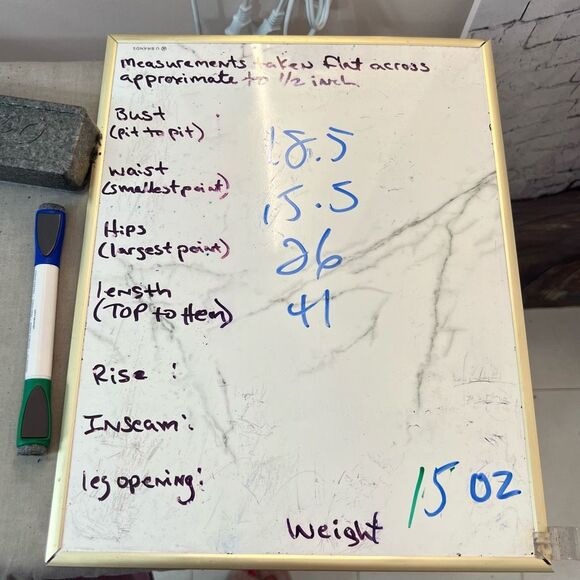 U BRANDS
Measurements taken flat across
approximate to 1/2 inch
Bust
(pit to pit) 18.5
Waist
(smallest point) 15.5
Hips
(largest point) 26
length
(TOP to Hem) 41
Rise :
Inseam:
leg opening:
15 oz
Weight